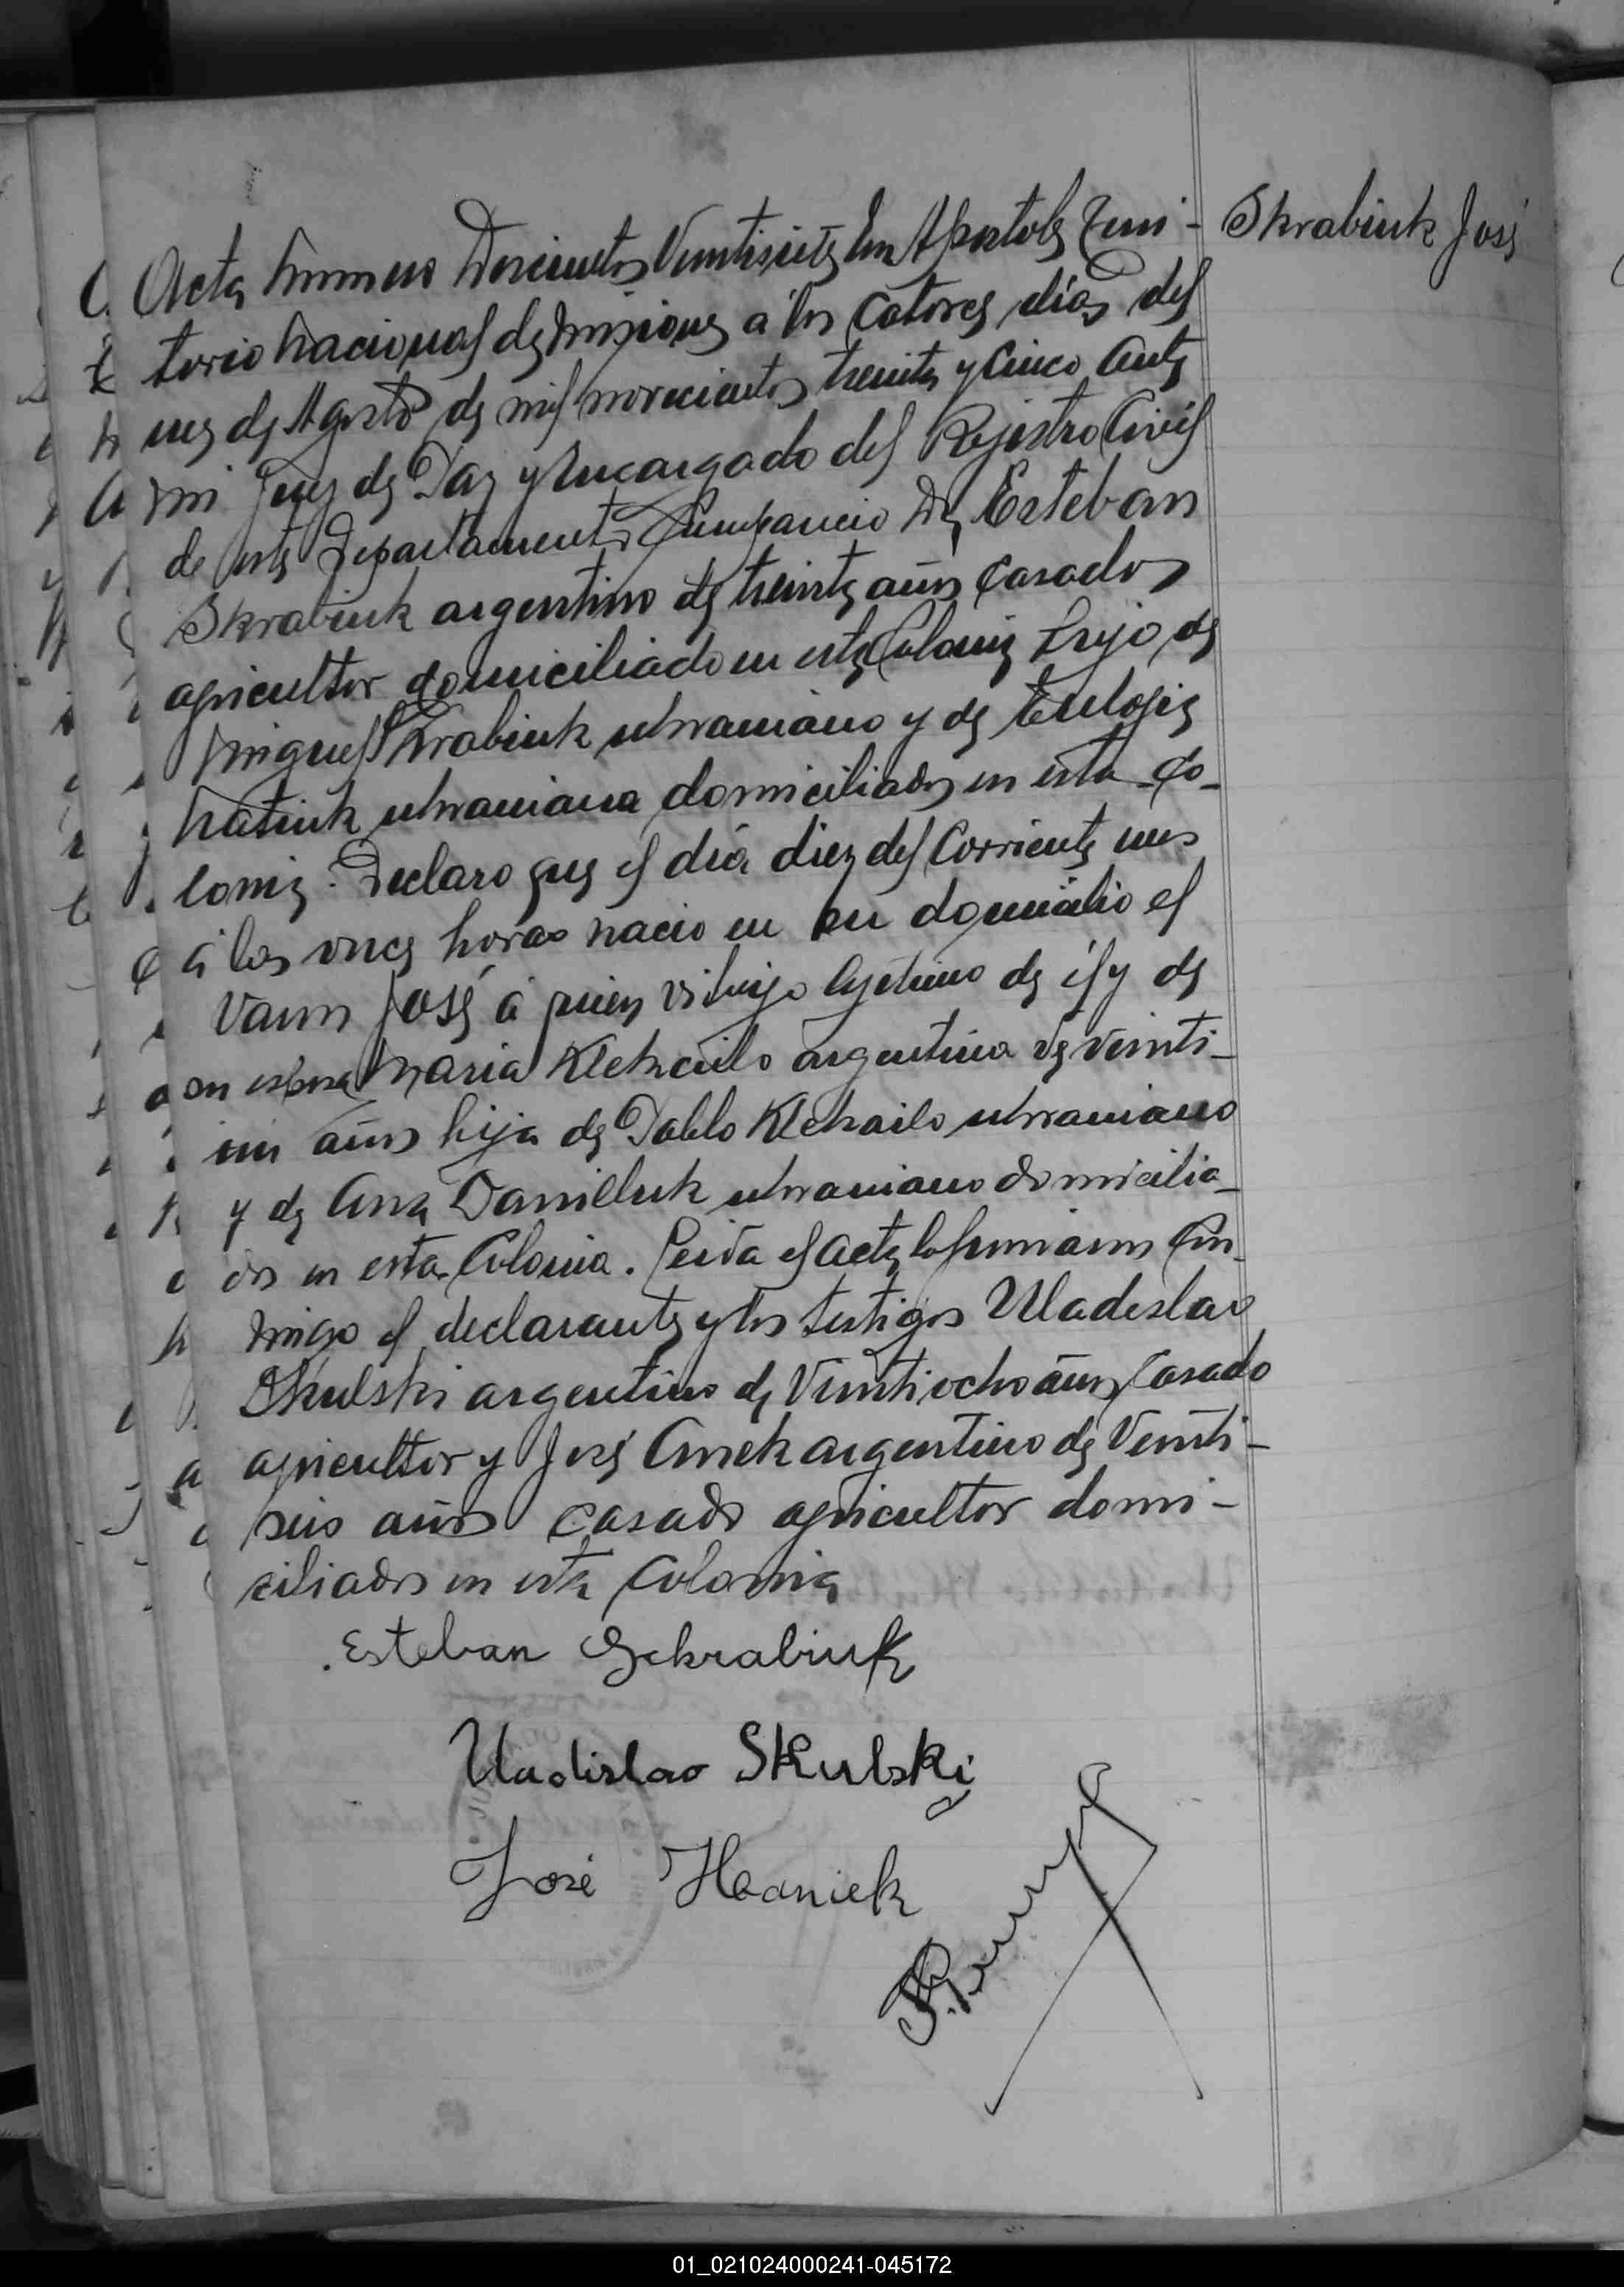 Skrabiuk José
Acta Numero Doscientos Veintisiete En Apostoles Terri-
torio Nacional de Misiones a los Catorce dias del
mes de Agosto de mil novecientos treinta y Cinco Ante
mi Juez de Paz y Encargado del Rejistro Civil
de este Departamento Compareció Dn Esteban
Skrabiuk argentino de treinta años casado
agricultor domiciliado en esta Colonia hijo de
Miguel Skrabiuk ukraniano y de Eulogia
ukraniana domiciliados en esta Co-
lonia. Declaro que el día diez del Corriente mes
á las once horas nacio en su domicilio el
Varon José á quien vi hijo lejitimo de él y de
su esposa Maria Klekailo argentina de veinti-
un años hija de Pablo Klekailo ukraniano
y de Ana Danilluk ukraniano domicilia-
dos en esta Colonia. Leida el acta la firmaron Con-
migo el declarante y los testigos Uladeslao
Skulski argentino de Veintiocho años Casado
agricultor y José argentino de Veinti-
seis años casado agricultor domi-
ciliados en esta Colonia
Esteban Sekrabiuk
Uladislao Skulski
José Haniek